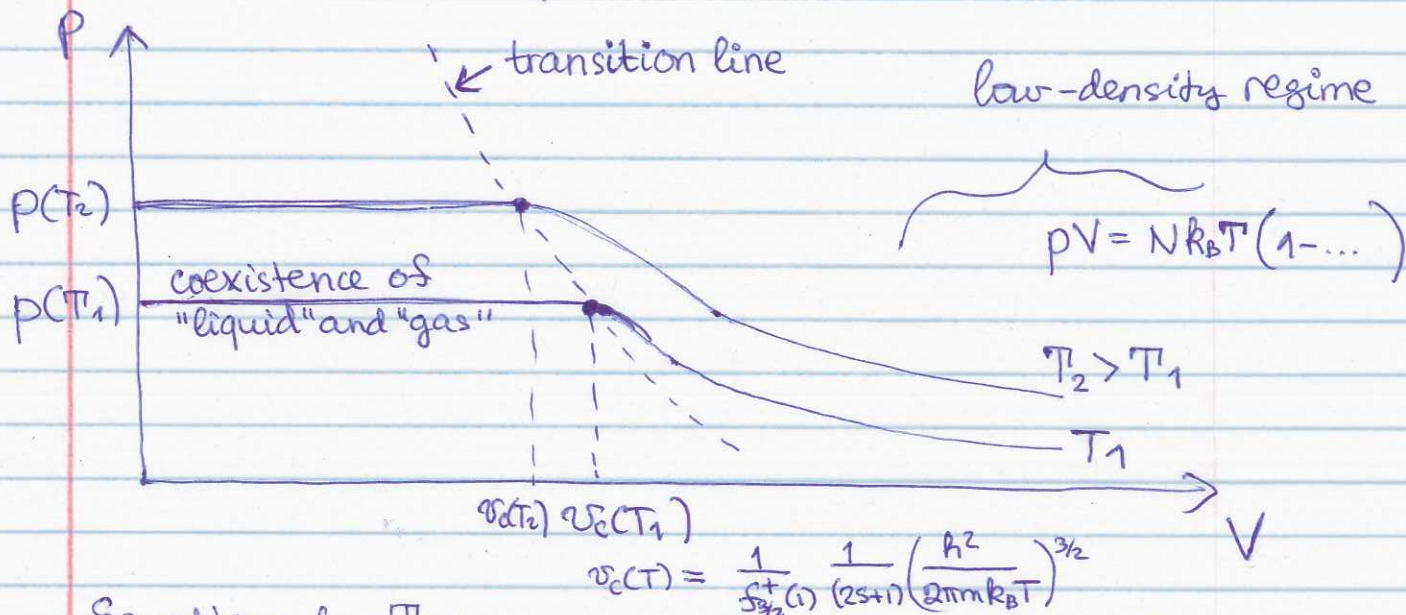 P
transition line
low-density regime
p(T₂)
pV = Nk_BT(1-...)
coexistence of
p(T₁)
"liquid" and "gas"
T₂ > T₁
T₁
v_c(T₂) v_c(T₁)
V
v_c(T) = \frac{1}{f^+_{3/2}(1)} \frac{1}{(2s+1)} \left(\frac{h^2}{2πmk_BT}\right)^{3/2}